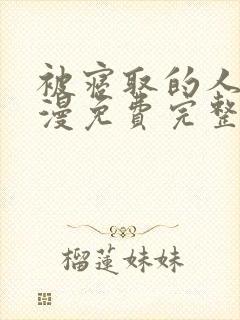 被窃取的人
漫免费完整
榴莲妹妹